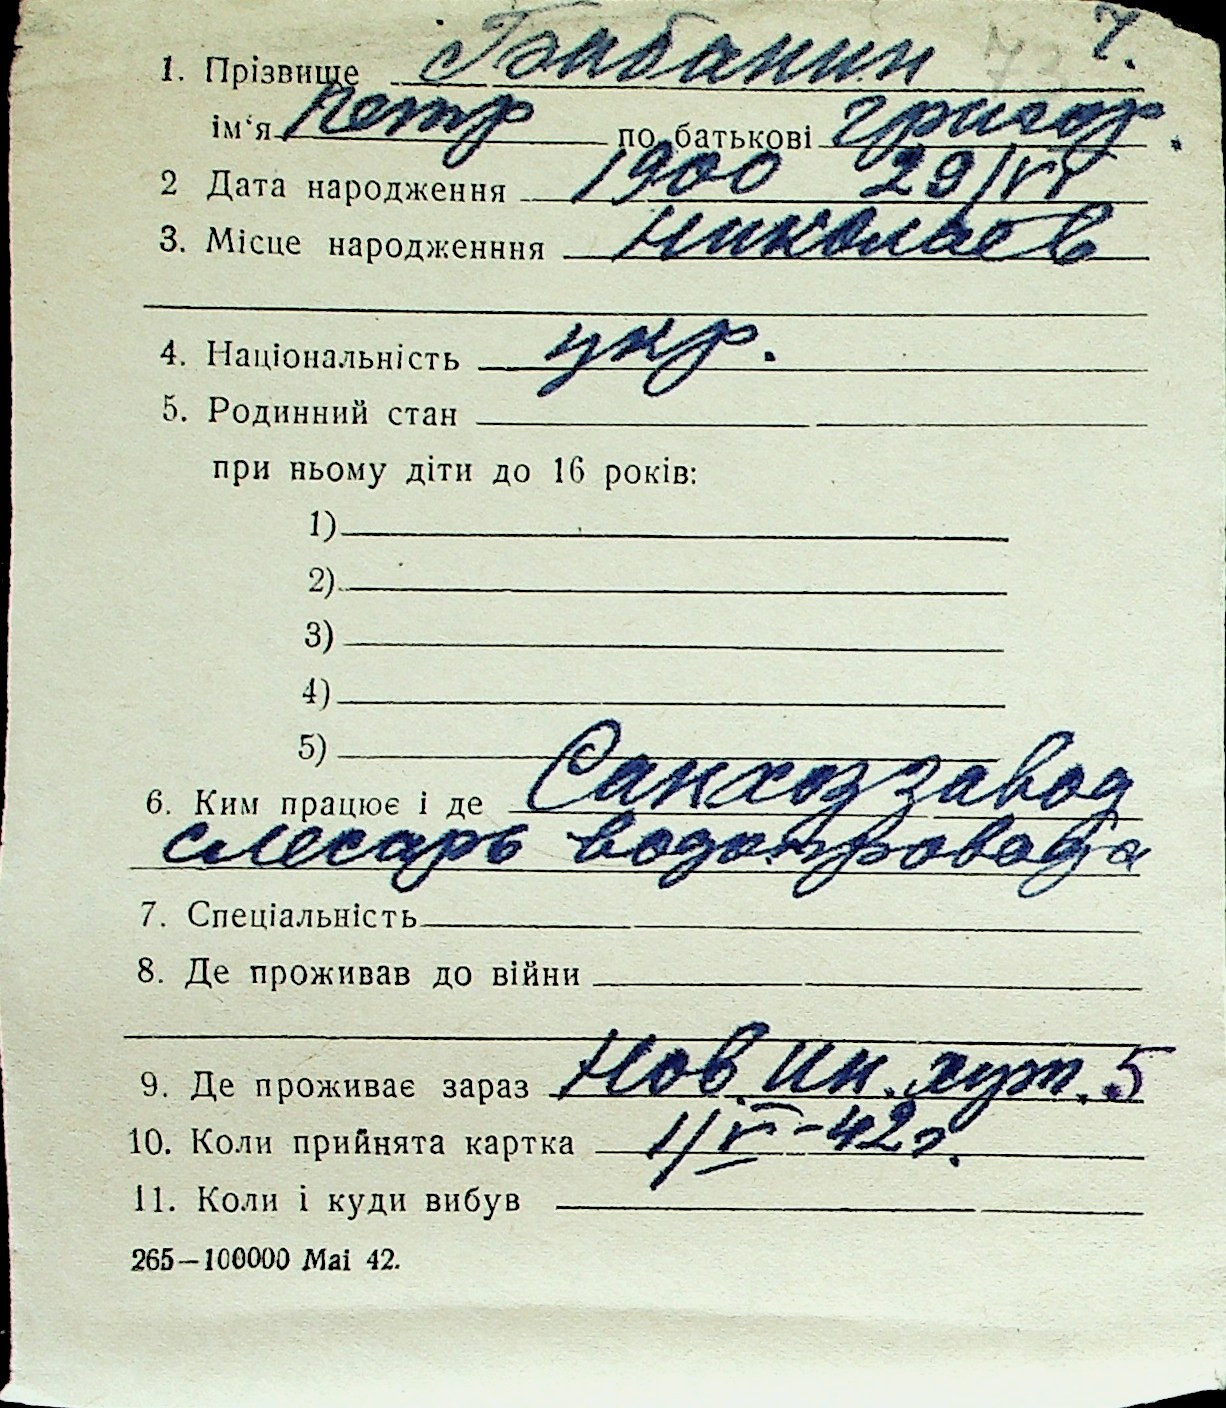 7.
73
1. Прізвище Бабанин
ім'я Петр по батькові Григор.
2 Дата народження 1900 29/VI
3. Місце народженння Николаев
4. Національність укр.
5. Родинний стан
при ньому діти до 16 років:
1)
2)
3)
4)
5)
6. Ким працює і де Санхоззавод
слесарь водопровода
7. Спеціальність
8. Де проживав до війни
9. Де проживає зараз Нов. Ин. хут. 5
10. Коли прийнята картка 1/VI-42г.
11. Коли і куди вибув
265—100000 Mai 42.